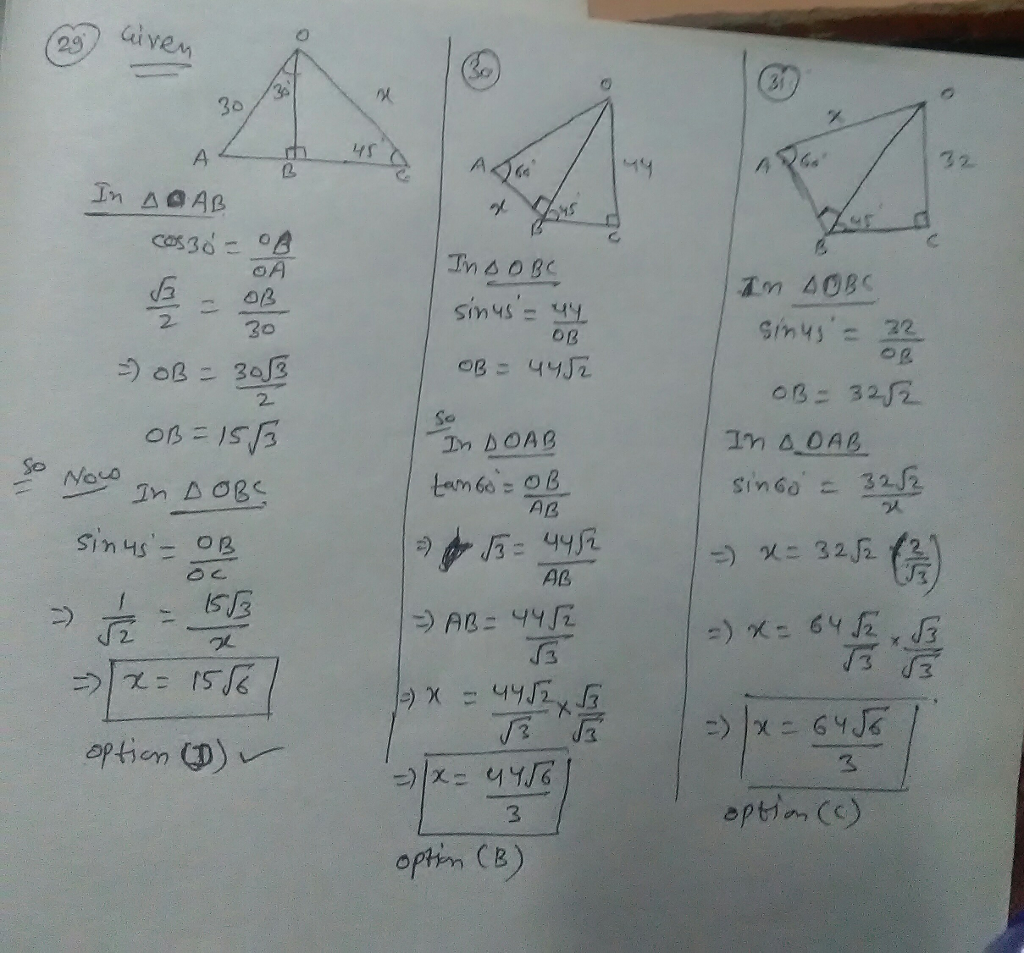 29 Given
O
30
30°
x
A
B
45°
C
In △OAB
cos30° = OB/OA
√3/2 = OB/30
=) OB = 30√3/2
OB = 15√3
so Now In △OBC
sin45° = OB/OC
=) 1/√2 = 15√3/x
=) x = 15√6
option (D) ✓
30
O
A
60°
44
x
45°
B
C
In △OBC
sin45° = 44/OB
OB = 44√2
so
In △OAB
tan60° = OB/AB
=) √3 = 44√2/AB
=) AB = 44√2/√3
=) x = 44√2/√3 × √3/√3
=) x = 44√6/3
option (B)
31
O
x
A
60°
32
45°
B
C
In △OBC
sin45° = 32/OB
OB = 32√2
In △OAB
sin60° = 32√2/x
=) x = 32√2 (2/√3)
=) x = 64√2/√3 × √3/√3
=) x = 64√6/3
option (C)